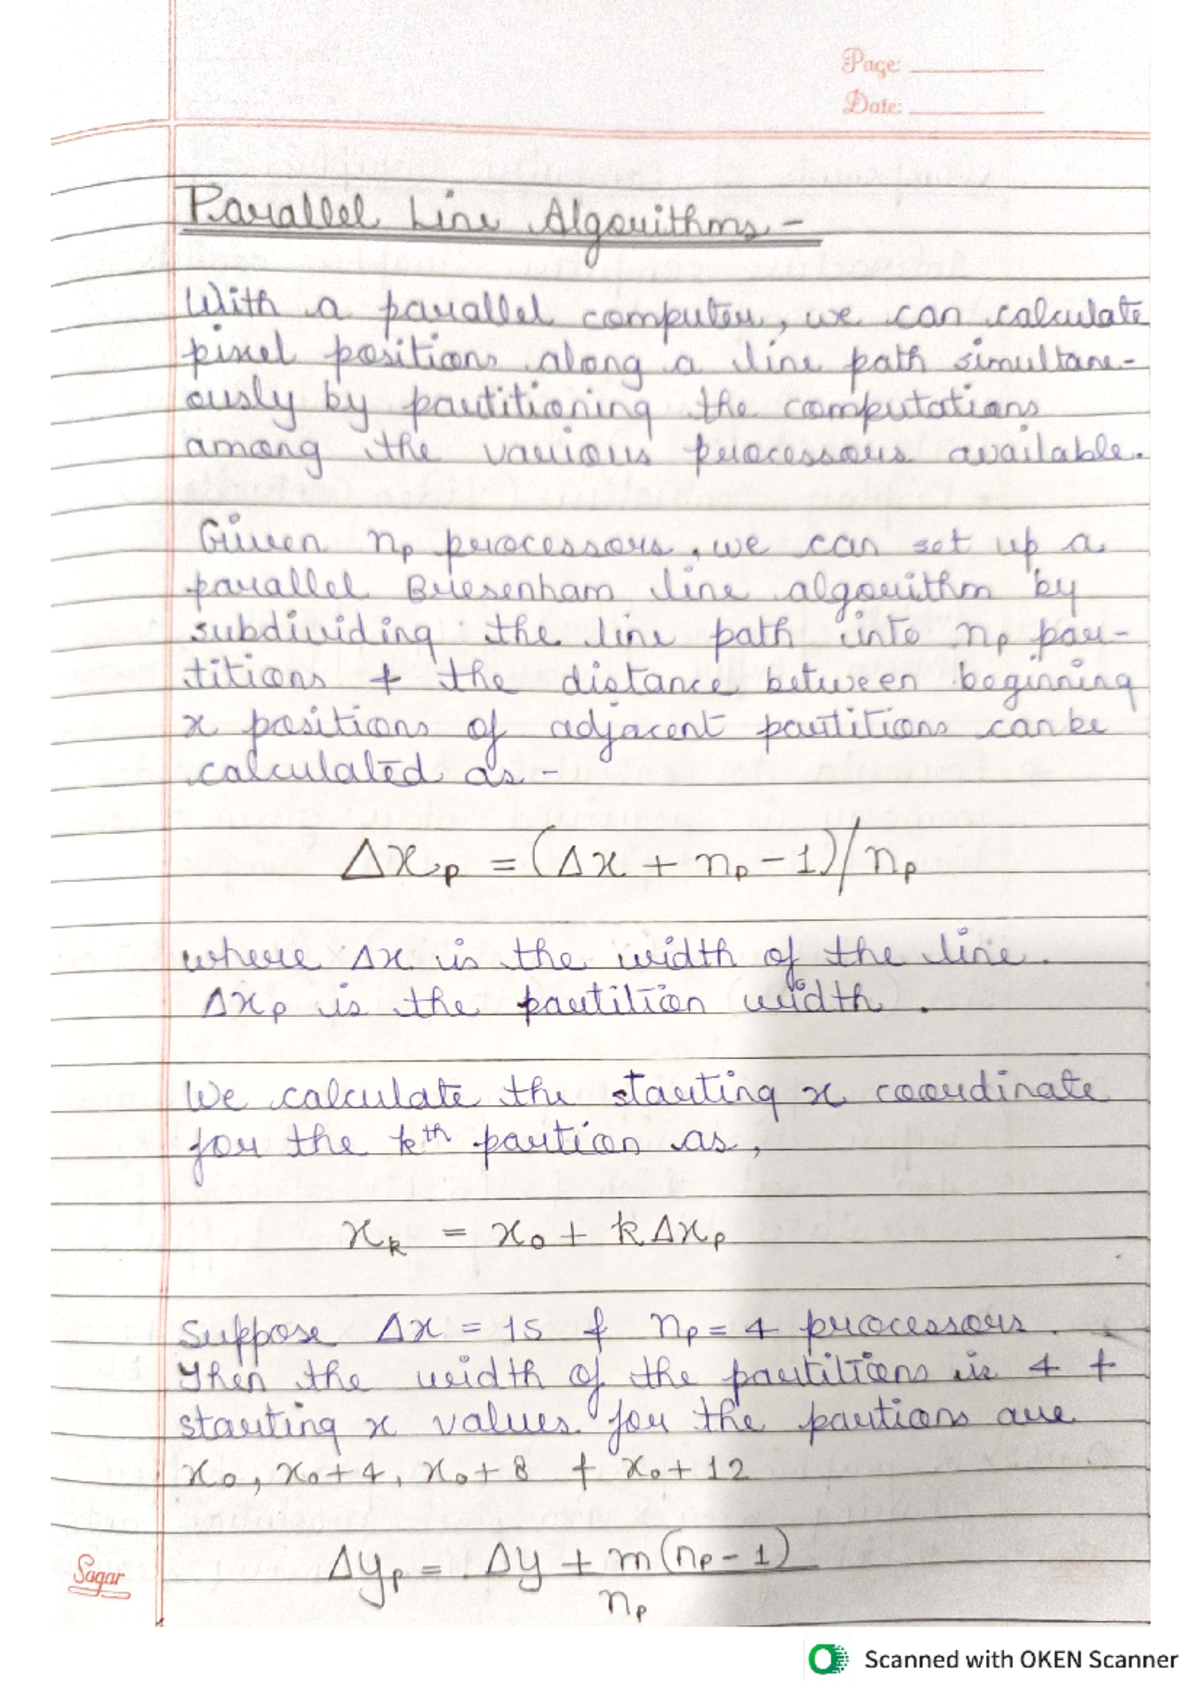 Page:
Date:
Parallel Line Algorithms -
With a parallel computer, we can calculate
pixel positions along a line path simultane-
ously by partitioning the computations
among the various processors available.
Given np processors, we can set up a
parallel Bresenham line algorithm by
subdividing the line path into np par-
titions & the distance between beginning
x positions of adjacent partitions can be
calculated as -
Δxp = (Δx + np - 1)/np
where Δx is the width of the line.
Δxp is the partition width.
We calculate the starting x coordinate
for the kth partion as,
xk = x0 + kΔxp
Suppose Δx = 15 & np = 4 processors.
Then the width of the partitions is 4 &
starting x values for the partions are
x0, x0+4, x0+8 & x0+12
Δyp = Δy + m(np - 1)
np
Sagar
Scanned with OKEN Scanner